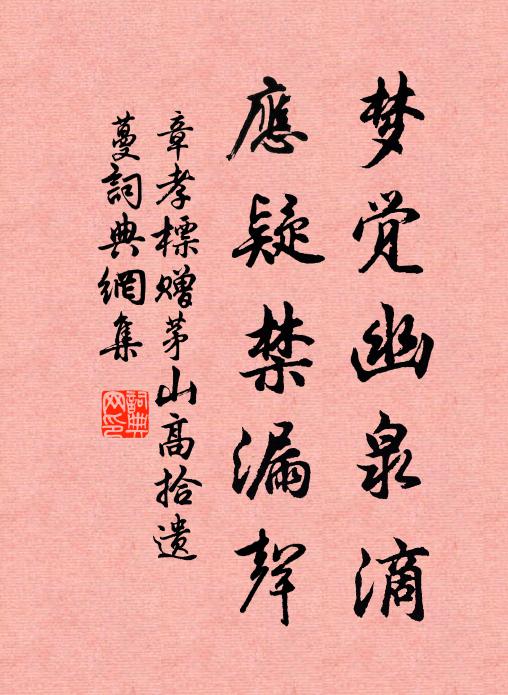 梦觉幽泉滴
應疑禁漏聲
章孝標赠茅山高拾遗
蔓詞典網集
詞典网印